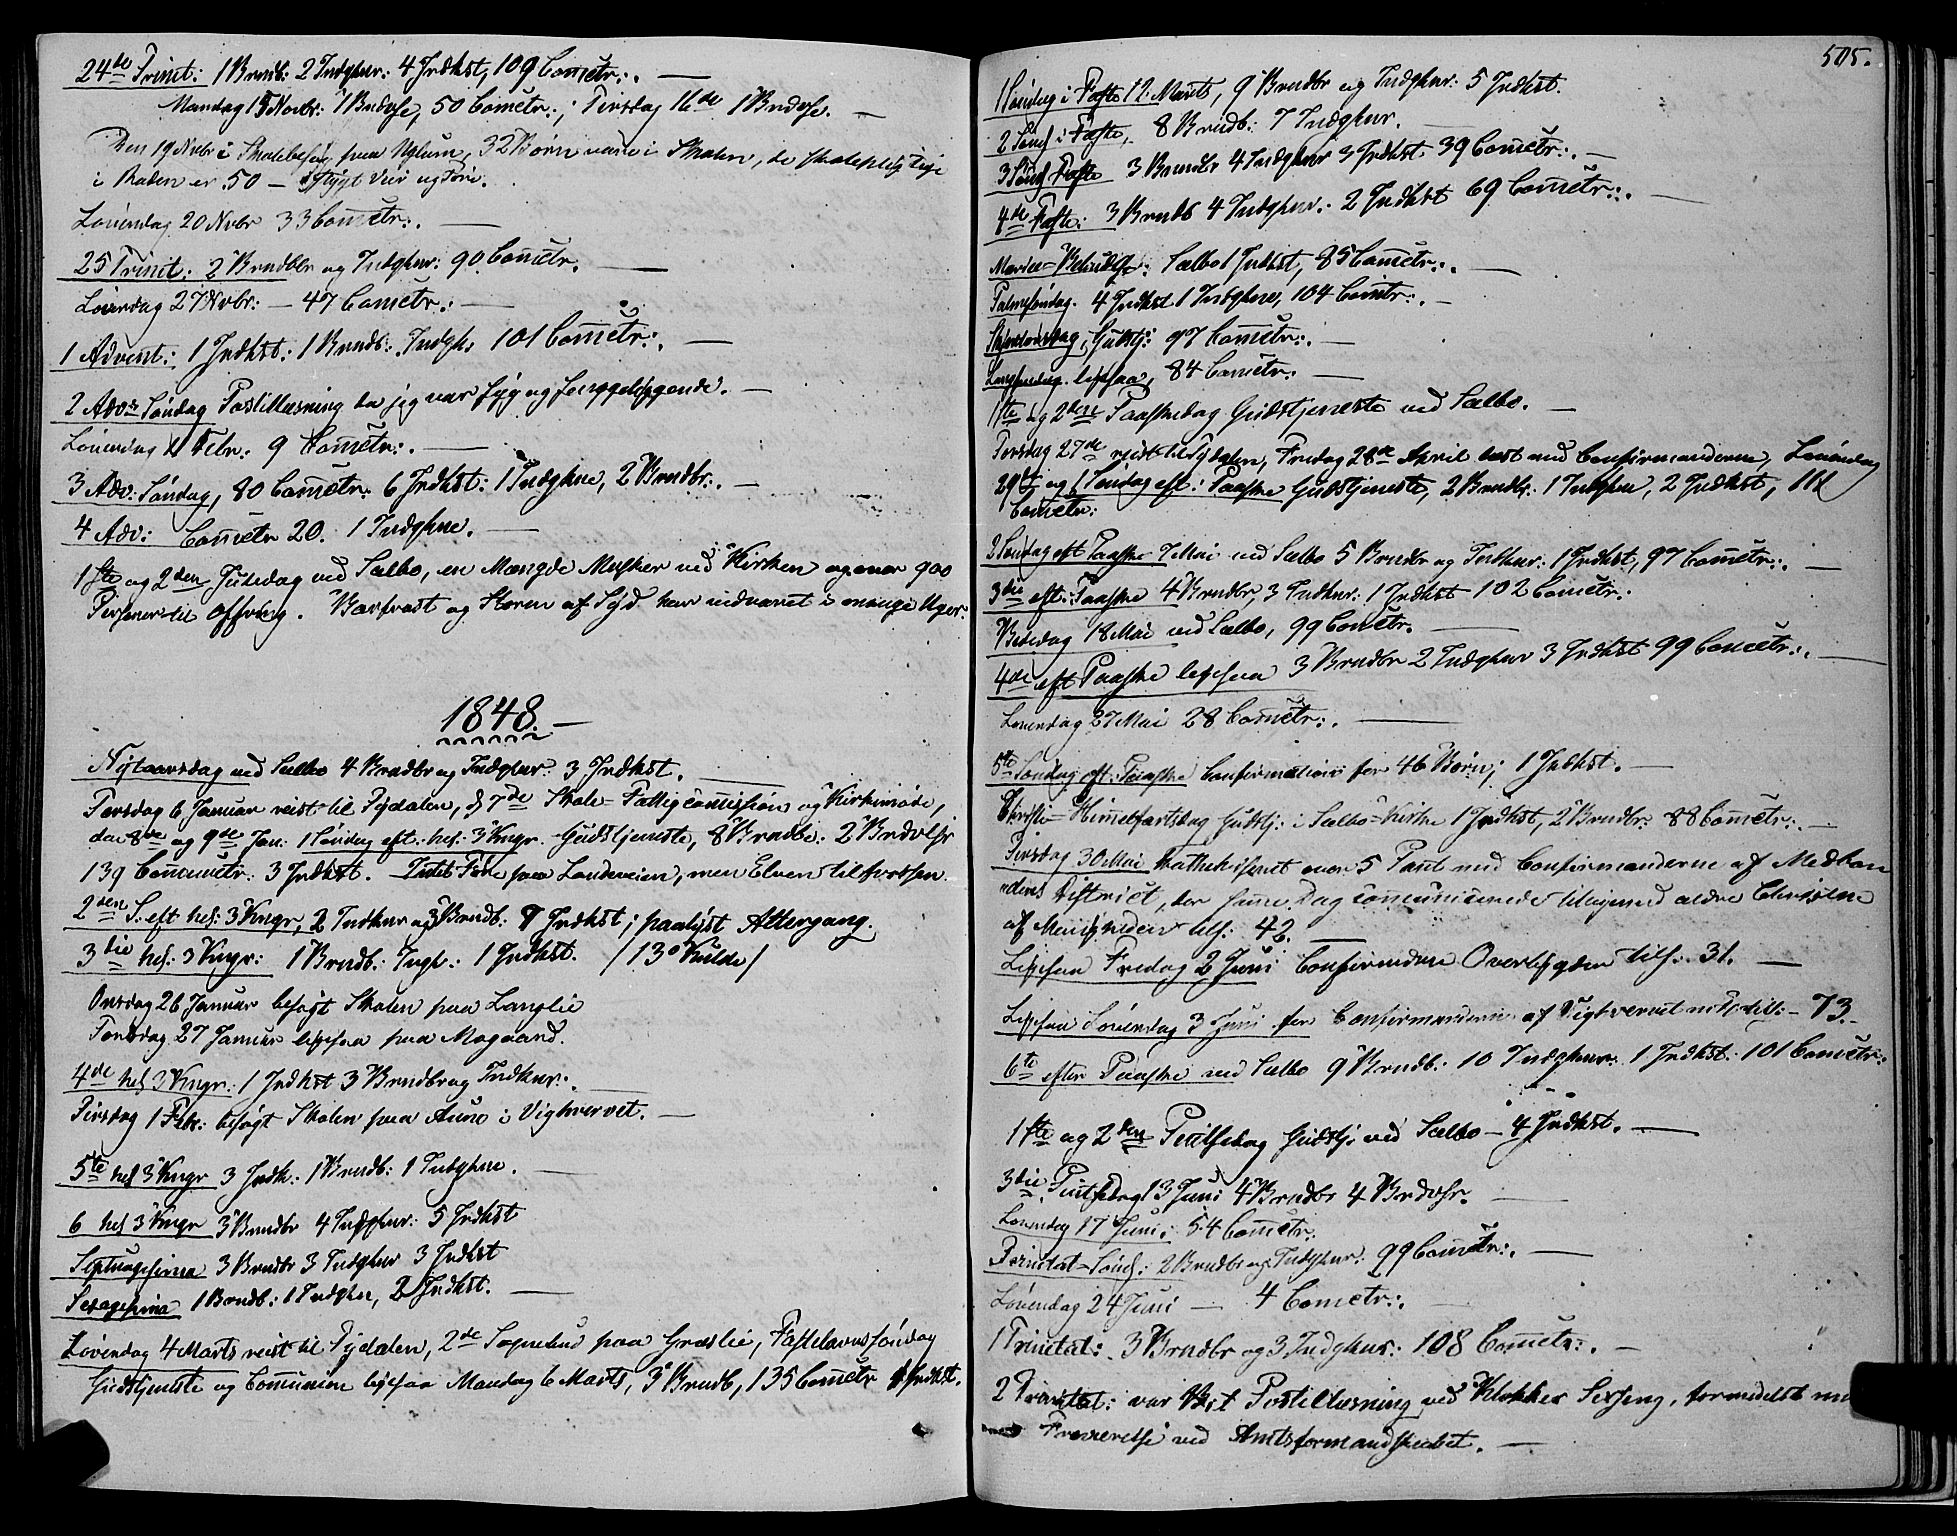 24de Trinit: 1 Brudb: 2 Indghur: 4 Jndkst, 109 Com̄ctr:. —
Mandag 15 Novbr: 1 Brdvse, 50 Com̄ctr:.; Tirsdag 16de 1 Brdvse. —
Den 19 Novbr i Skolebesøg paa Uglum, 32 Børn vare i Skolen, de skolepligtige
i Roden er 50 — stygt Veir og Føre.
Løverdag 20 Nvbr 33 Com̄ctr:. —
25 Trinit: 2 Brudbr og Indghur: 90 Com̄ctr. —
Løverdag 27 Nvbr: — 47 Com̄ctr.: —
1 Advent: 1 Jndkst: 1 Brudb: Indgh. 101 Com̄ctr:. —
2 Adv: Søndag Postillæsning da jeg var syg og sengeliggende. —
Løverdag 11 9 Com̄ctr:. —
3 Adv: Søndag, 80 Com̄ctr: 6 Jndkst: 1 Indghue, 2 Brudbr:. —
4 Adv: Com̄ctr 20. 1 Indghue. —
1ste og 2den Juledag ved Sælbo, en Mængde Mennesker ved Kirken og over 900
Personer til Offring. Barfrost og Storm af Syd har vedvaret i mange Uger.
1848. —
Nytaarsdag ved Sælbo 4 Brudbr og Indghur: 3 Jndkst. —
Torsdag 6 Januar reist til Tydalen, d 7de Skole- Fattigcom̄ission og Kirkemøde,
den 8de og 9de Jan: 1 Søndag eft: hel: 3 Kngr. Gudstjeneste, 8 Brudbr: 2 Brdvser
139 Com̄unctr: 3 Jndkst. Intet Føre paa Landeveien, men Elven tilfrossen.
2den S. eft hel: 3 Kngr, 2 Indkur og 3 Brudb: 8 Jndkst; paalyst Altergang.
3die hel: 3 Kngr: 1 Brudb: Ingh.: 1 Jndkst. /13° Kulde/
Onsdag 26 Januar besøgt Skolen paa Langlie
Torsdag 27 Januar ligesaa paa Mogaard.
4de hel 3 Kngr: 1 Jndkst 3 Brudbr og Indkur:. —
Tirsdag 1 Febr: besøgt Skolen paa Aune i Vighvervet. —
5te hel 3 Kngr 3 Jndk: 1 Brudb: 1 Indghue. —
6 hel 3 Kngr 3 Brudbr 4 Indghur: 5 Jndkst
Septuagesima 3 Brudbr 3 Indghur 3 Jndkst
Sexagesima 1 Brudb: 1 Indghue, 2 Jndkst. —
Løverdag 4 Marts reist til Tydalen, 2de Sognebud paa Græslie, Fastelavnssøndag
Gudstjeneste og Com̄union ligesaa Mandag 6 Marts, 3 Brudb, 135 Com̄ctr Jndkst.
505.
1 Søndag i Faste 12. Marts, 9 Brudbr og Indghur: 5 Jndkst.
2 Sønd i Faste, 8 Brudb: 7 Indghur. —
3 Sønd Faste 3 Brudbr 4 Indghur 3 Jndkst 39 Com̄ctr:. —
4de Faste: 3 Brudb 4 Indghur: 2 Jndkst 69 Com̄ctr:. —
Mariæ-Bebud: Sælbo 1 Jndkst, 85 Com̄ctr:. —
Palmesøndag. 4 Jndkst 1 Indghue, 104 Com̄ctr:. —
Skjærtorsdag, Gudstj: 97 Com̄ctr:. —
Langfredag ligesaa, 84 Com̄ctr: —
1ste og 2den Paaskedag Gudstjeneste ved Sælbo. —
Torsdag 27de reist til Tydalen, Fredag 28de April læst med Confirmanderne, Løverdag
29de og 1 Søndag eft: Paaske Gudstjeneste, 2 Brudbr: 1 Indghue, 2 Jndkst, 111
Com̄ctr:
2 Søndag eft Paaske 7 Mai ved Sælbo 5 Brudbr og Indkur: 1 Jndkst, 97 Com̄ctr:. —
3die eft: Paaske 4 Brudbr, 3 Indkur: 1 Jndkst 102 Com̄ctr:.
Bededag 18 Mai ved Sælbo, 99 Com̄ctr. —
4de eft Paaske ligesaa 3 Brudbr 2 Indghur 3 Jndkst 99 Com̄ctr:. —
Løverdag 27 Mai 28 Com̄ctr:. —
5te Søndag eft: Paaske Confirmation for 46 Børn; 1 Jndkst. —
Christi-Himmelfartsdag Gudstj: i Sælbo-Kirke 1 Jndkst, 2 Brudbr: 88 Com̄ctr:. —
Tirsdag 30 Mai Kathekiseret over 5 Part med Confirmanderne af
District, der samme Dag com̄unicerede tilligemed ældre Christne
af Menigheden tils: 42. —
Ligesaa Fredag 2 Juni Confirmdne Overbygden tils: 31. —
Ligesaa Løverdag 3 Juni for Confirmanderne af Vighvervet tils: — 73. —
6te efter Paaske ved Sælbo 9 Brudb: 10 Indghur: 1 Jndkst: 101 Com̄ctr:
1ste og 2den Pintsedag Gudstj: ved Sælbo — 4 Jndkst. —
3die Pintsedag 13 Juni 4 Brudbr 4 Brdvsr. —
Løverdag 17 Juni: 54 Com̄ctr.
Trinitat-Sønd: 2 Brudbr og Indghur: 99 Com̄ctr:. —
Løverdag 24 Juni — 4 Com̄ctr:. —
1 Trinitat: 3 Brudbr og 3 Indghur: 108 Com̄ctr:. —
2 Trinitat: var Postillæsning ved Klokker Sesseng, formedelst min
Fraværelse ved Amtsformandskabet. —